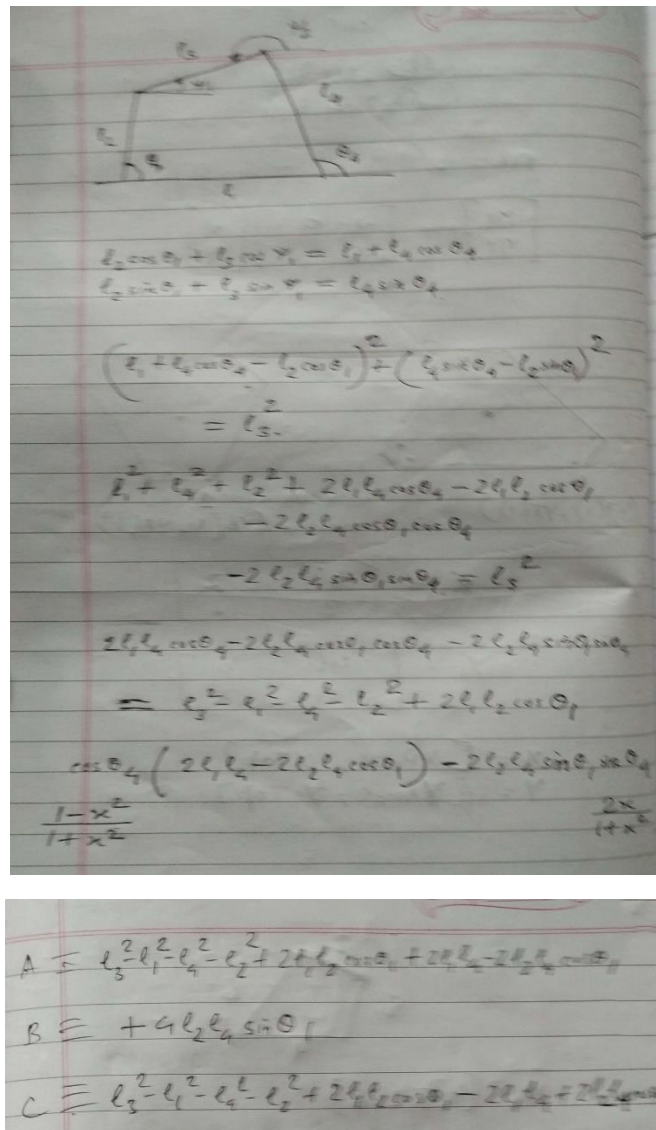 l₃
l₂
l₄
θ₄
l
l₂ cosθ₁ + l₃ cos γ₁ = l₁ + l₄ cos θ₄
l₂ sinθ₁ + l₃ sin γ₁ = l₄ sin θ₄
(l₁ + l₄ cosθ₄ - l₂ cosθ₁)² + (l₄ sinθ₄ - l₂ sinθ₁)²
= l₃²
l₁² + l₄² + l₂² + 2l₁l₄ cosθ₄ - 2l₁l₂ cosθ₁
- 2l₂l₄ cosθ₁ cosθ₄
- 2l₂l₄ sinθ₁ sinθ₄ = l₃²
2l₁l₄ cosθ₄ - 2l₂l₄ cosθ₁ cosθ₄ - 2l₂l₄ sinθ₁ sinθ₄
= l₃² - l₁² - l₄² - l₂² + 2l₁l₂ cosθ₁
cosθ₄ (2l₁l₄ - 2l₂l₄ cosθ₁) - 2l₂l₄ sinθ₁ sinθ₄
1-x²/1+x² 2x/1+x²
A = l₃² - l₁² - l₄² - l₂² + 2l₁l₂ cosθ₁ + 2l₁l₄ - 2l₂l₄ cosθ₁
B ≡ + 4l₂l₄ sinθ₁
C ≡ l₃² - l₁² - l₄² - l₂² + 2l₁l₂ cosθ₁ - 2l₁l₄ + 2l₂l₄ cos